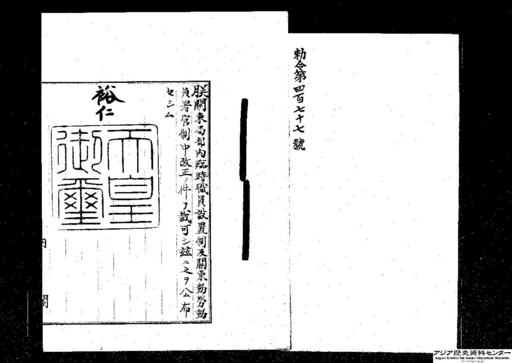 勅令第四百七十七號
朕關東局部內臨時職員設置制及關東勞務動
員署官制中改正ノ件ヲ裁可シ玆ニ之ヲ公布
セシム
裕仁
天皇
御璽
內閣
アジア歴史資料センター
Japan Center for Asian Historical Records